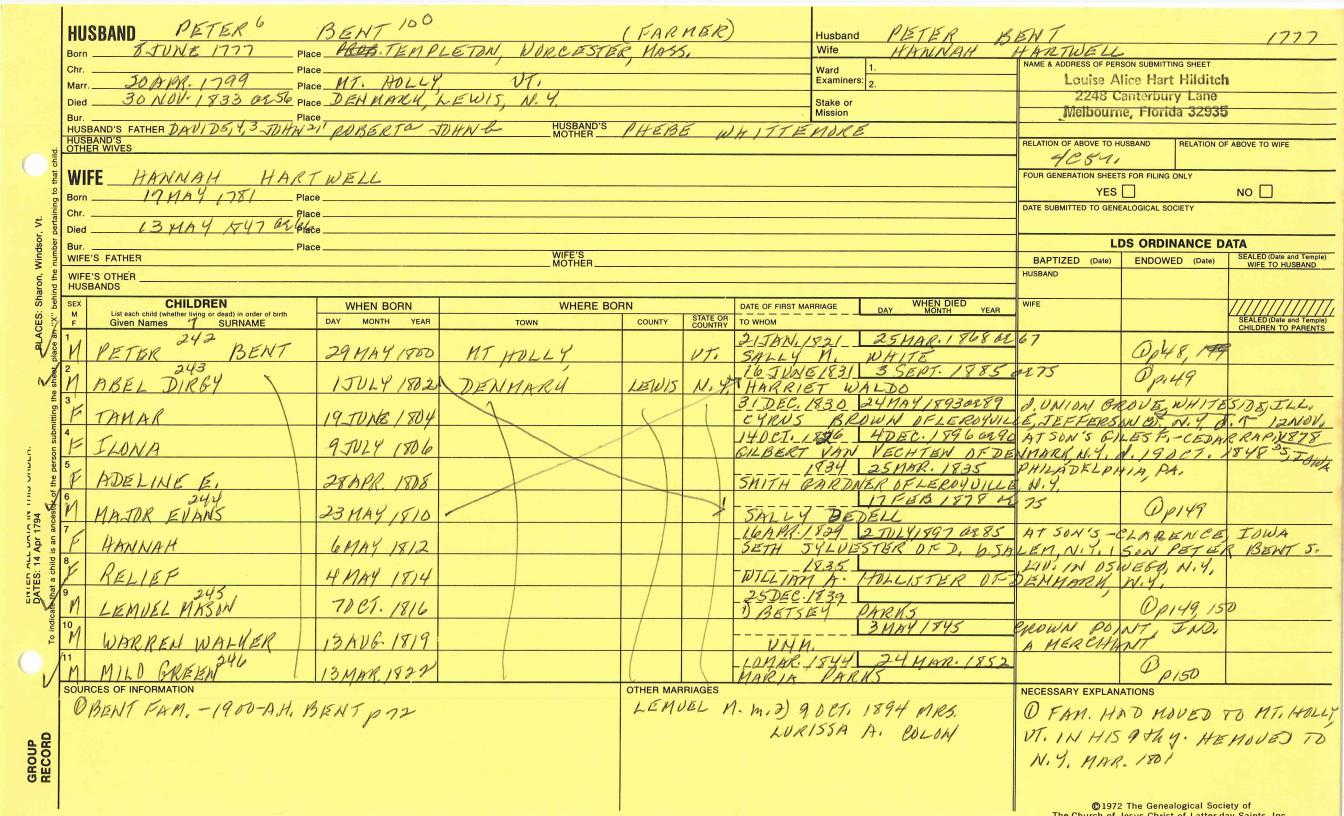 HUSBAND PETER 6 BENT 100 (FARMER)
Born 8 JUNE 1777 Place TEMPLETON, WORCESTER, MASS.
Chr. Place
Marr. 20 APR. 1799 Place MT. HOLLY, VT.
Died 30 NOV. 1833 ae 56 Place DENMARK, LEWIS, N.Y.
Bur. Place
HUSBAND'S FATHER DAVID 5, 4, 3 JOHN 2, 1 ROBERT a JOHN b HUSBAND'S MOTHER PHEBE WHITTEMORE
HUSBAND'S OTHER WIVES
Husband PETER BENT 1777
Wife HANNAH HARTWELL
Ward Examiners: 1. 2.
Stake or Mission
NAME & ADDRESS OF PERSON SUBMITTING SHEET
Louise Alice Hart Hilditch
2248 Canterbury Lane
Melbourne, Florida 32935
RELATION OF ABOVE TO HUSBAND RELATION OF ABOVE TO WIFE
4C5r.
FOUR GENERATION SHEETS FOR FILING ONLY
YES NO
DATE SUBMITTED TO GENEALOGICAL SOCIETY
WIFE HANNAH HARTWELL
Born 17 MAY 1781 Place
Chr. Place
Died 13 MAY 1847 ae 66 Place
Bur. Place
WIFE'S FATHER WIFE'S MOTHER
WIFE'S OTHER HUSBANDS
LDS ORDINANCE DATA
BAPTIZED (Date) ENDOWED (Date) SEALED (Date and Temple) WIFE TO HUSBAND
HUSBAND
WIFE
SEALED (Date and Temple) CHILDREN TO PARENTS
SEX M F CHILDREN WHEN BORN WHERE BORN DATE OF FIRST MARRIAGE WHEN DIED
List each child (whether living or dead) in order of birth
Given Names 7 SURNAME DAY MONTH YEAR TOWN COUNTY STATE OR COUNTRY TO WHOM DAY MONTH YEAR
1 M PETER 242 BENT 29 MAY 1800 MT HOLLY, VT. 21 JAN. 1821 25 MAR. 1868 ae 67
SALLY M. WHITE ① p148, 149
2 M ABEL DIRGY 243 1 JULY 1802 DENMARK LEWIS N.Y. 16 JUNE 1831 3 SEPT. 1885 ae 75
HARRIET WALDO ① p149
3 F TAMAR 19 JUNE 1804 31 DEC. 1830 24 MAY 1893 ae 89 d. UNION GROVE, WHITESIDE, ILL.
CYRUS BROWN OF LEROYVILLE, JEFFERSON CO. N.Y. d. 12 NOV. 1878
4 F ILONA 9 JULY 1806 14 OCT. 1826 4 DEC. 1896 ae 90 AT SON'S GILES F.-CEDAR RAP, IOWA
GILBERT VAN VECHTEN OF DENMARK, N.Y. d. 19 OCT. 1848
5 F ADELINE E. 28 APR. 1808 1834 25 MAR. 1835 PHILADELPHIA, PA.
SMITH GARDNER OF LEROYVILLE N.Y.
6 M MAJOR EVANS 244 23 MAY 1810 17 FEB 1878 75
SALLY BEDELL ① p149
7 F HANNAH 6 MAY 1812 16 APR. 1829 2 JULY 1897 ae 85 AT SON'S-CLARENCE, IOWA
SETH SYLVESTER OF D. b. SALEM, N.Y. 1 SON PETER BENT S. LIV. IN OSWEGO, N.Y.
8 F RELIEF 4 MAY 1814 1835
WILLIAM A. HOLLISTER OF DENMARK, N.Y.
9 M LEMUEL MASON 245 7 OCT. 1816 25 DEC. 1839
1) BETSEY PARKS ① p149, 150
10 M WARREN WALKER 13 AUG. 1819 3 MAY 1845 CROWN POINT, IND.
UNM. A MERCHANT
11 M MILO GREEN 246 13 MAR. 1822 10 MAR. 1844 24 MAR. 1852
MARIA PARKS ① p150
SOURCES OF INFORMATION
① BENT FAM. -1900-A.H. BENT p 72
OTHER MARRIAGES
LEMUEL M. m. 2) 9 OCT. 1894 MRS.
LURISSA A. COLON
NECESSARY EXPLANATIONS
① FAM. HAD MOVED TO MT. HOLLY,
VT. IN HIS 9th y. HE MOVED TO
N.Y. MAR. 1801
©1972 The Genealogical Society of
The Church of Jesus Christ of Latter-day Saints, Inc.
GROUP RECORD
ENTER ALL DATA IN THIS ORDER:
DATES: 14 Apr 1794
PLACES: Sharon, Windsor, Vt.
To indicate that a child is an ancestor of the person submitting the sheet, place an "X" behind the number pertaining to that child.